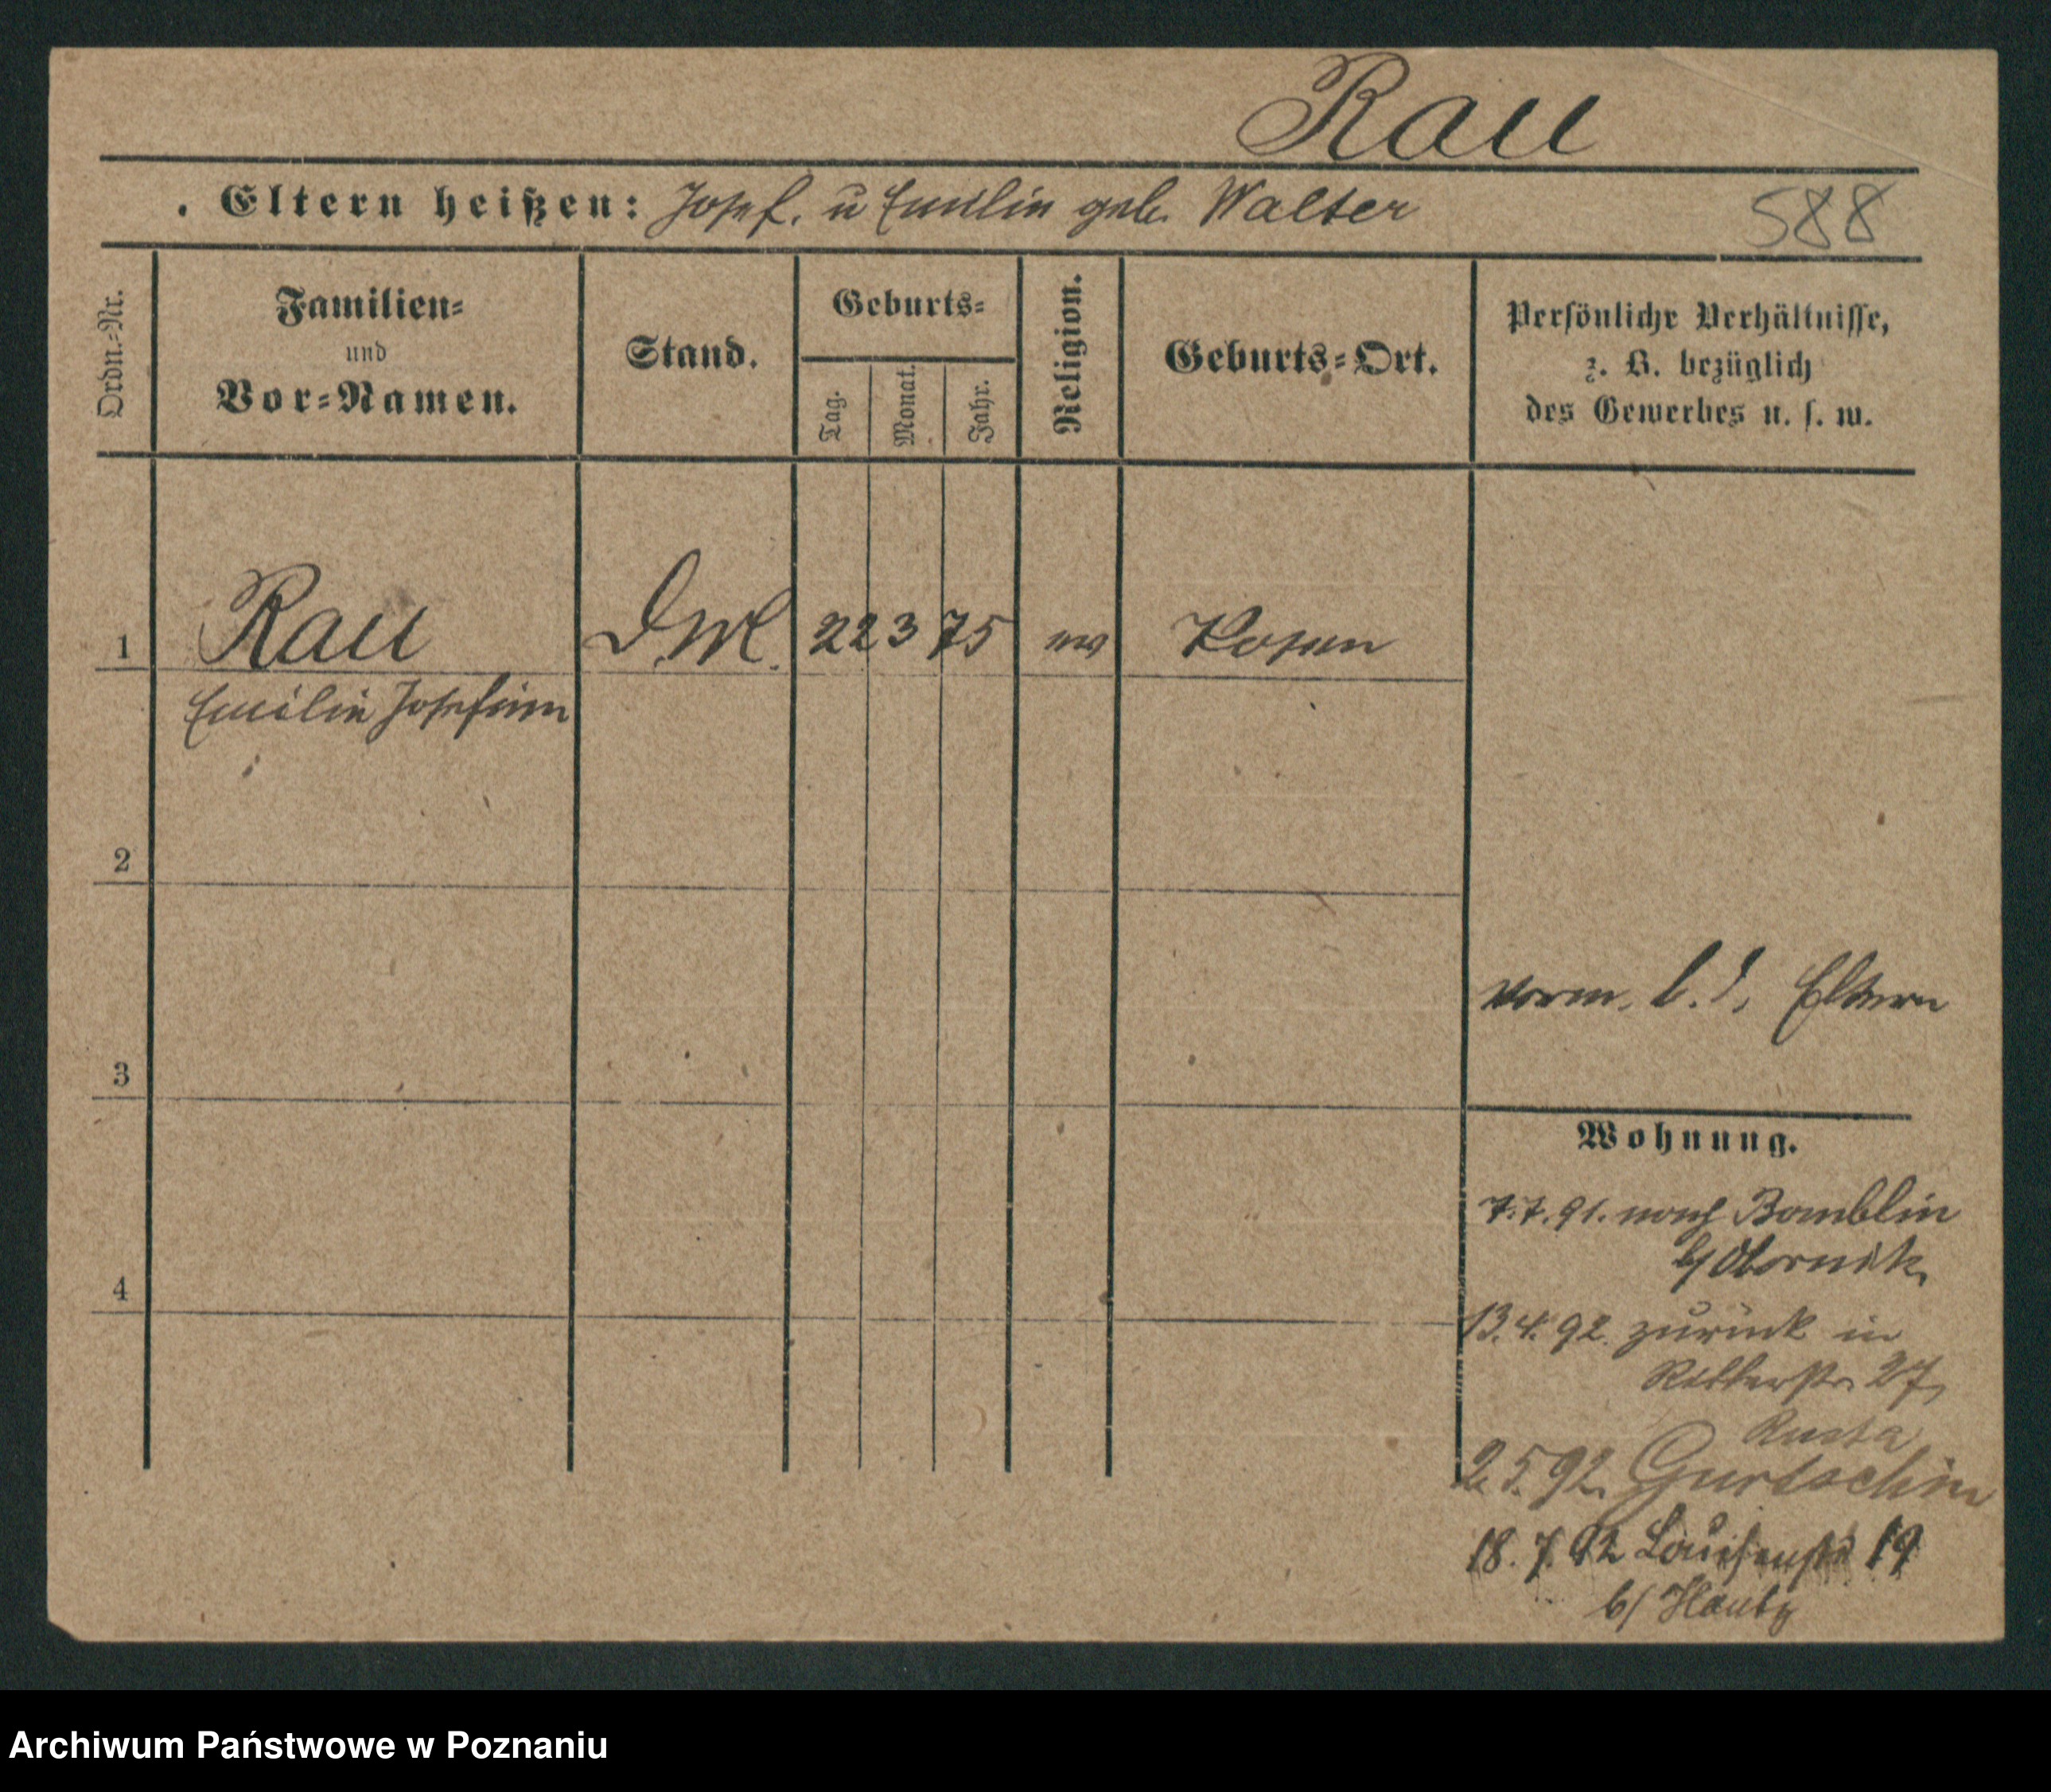 Rau
. Eltern heißen: Josef. u Emilie geb. Walter
588
Ordn.-Nr.
Familien- und Vor-Namen.
Stand.
Geburts-
Tag.
Monat.
Jahr.
Religion.
Geburts-Ort.
Persönliche Verhältnisse,
z. B. bezüglich
des Gewerbes u. s. w.
1 Rau D.M. 22 3 75 ev Posen
Emilie Josefine
2
vorm. b. d. Eltern
3
Wohnung.
7.7.91. nach Bomblin
b/Obornik
4
13.4.92. zurück in
Ritterstr. 27
2.5.92. Gurtschin
18.7.92 Louisenstr 19
b/
Archiwum Państwowe w Poznaniu